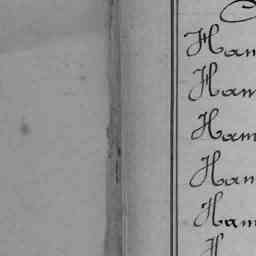 C
Ham
Ham
Ham
Ham
Ham
H